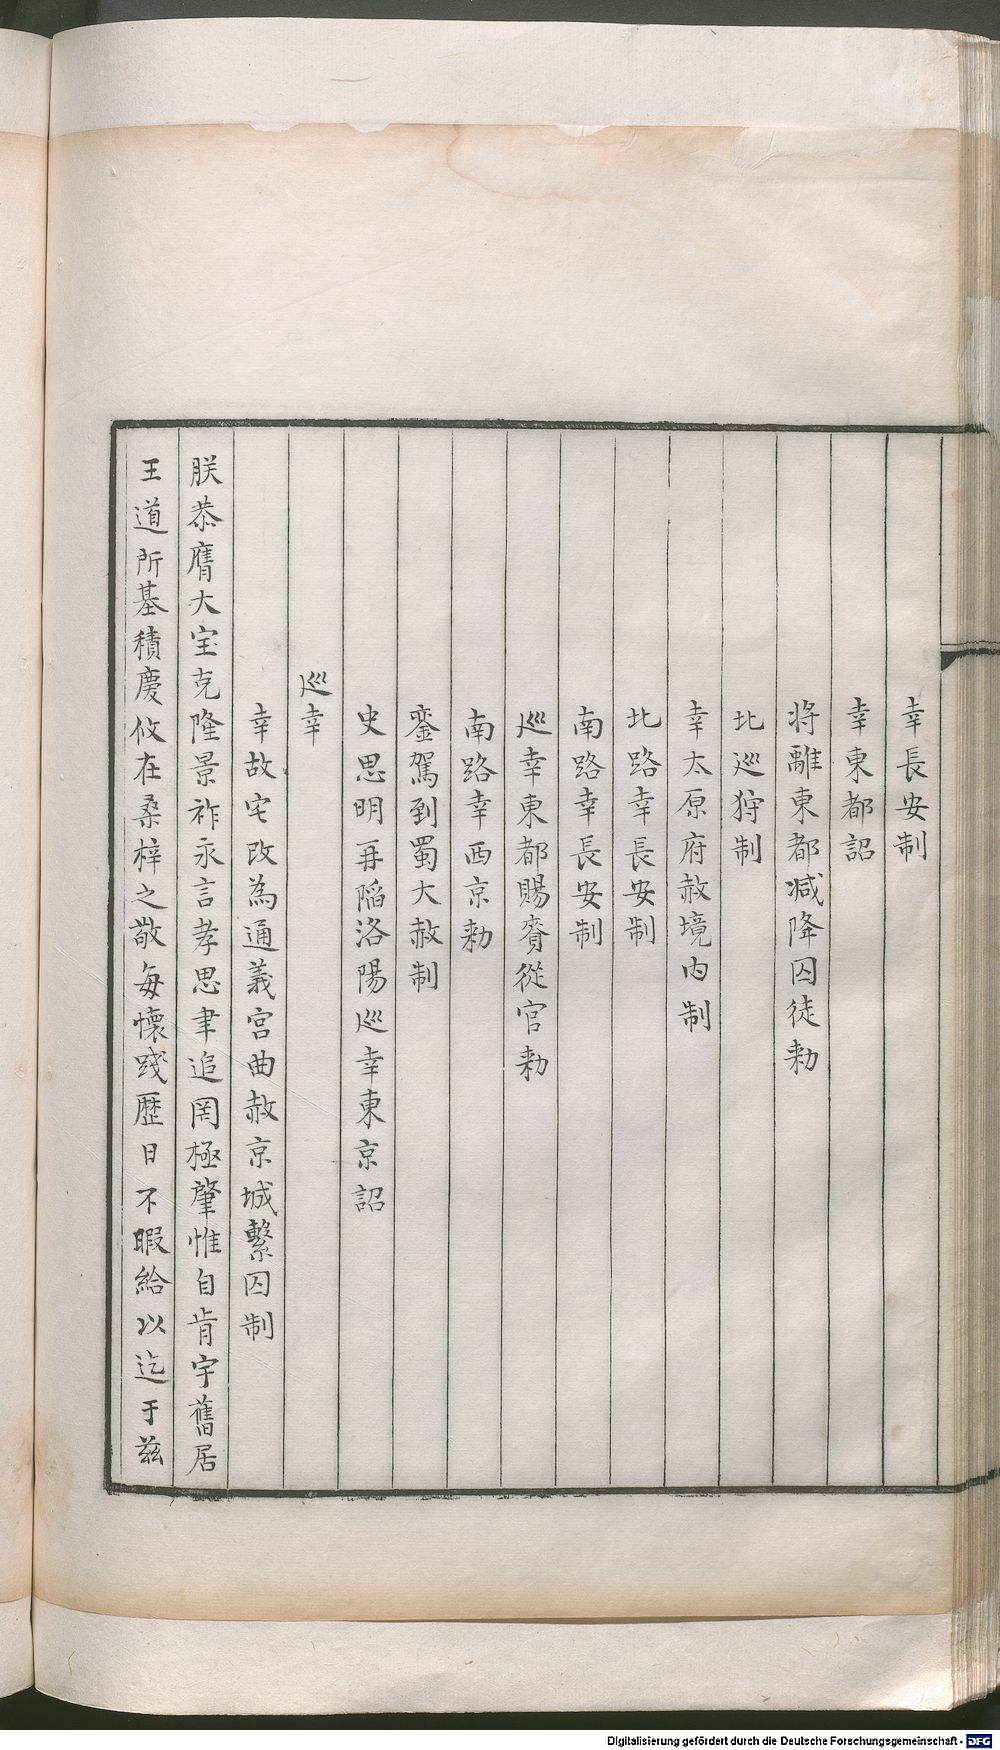 幸長安制
幸東都詔
將離東都减降囚徒勑
北巡狩制
幸太原府赦境内制
北路幸長安制
南路幸長安制
巡幸東都賜賚從官勑
南路幸西京勑
鑾駕到蜀大赦制
史思明再陷洛陽巡幸東京詔
巡幸
幸故宅改為通義宮曲赦京城繫囚制
朕恭膺大宝克隆景祚永言孝思聿追罔極肇惟自肯宇舊居
王道所基積慶攸在桑梓之敬每懷踐歷日不暇給以迄于兹
Digitalisierung gefördert durch die Deutsche Forschungsgemeinschaft - DFG